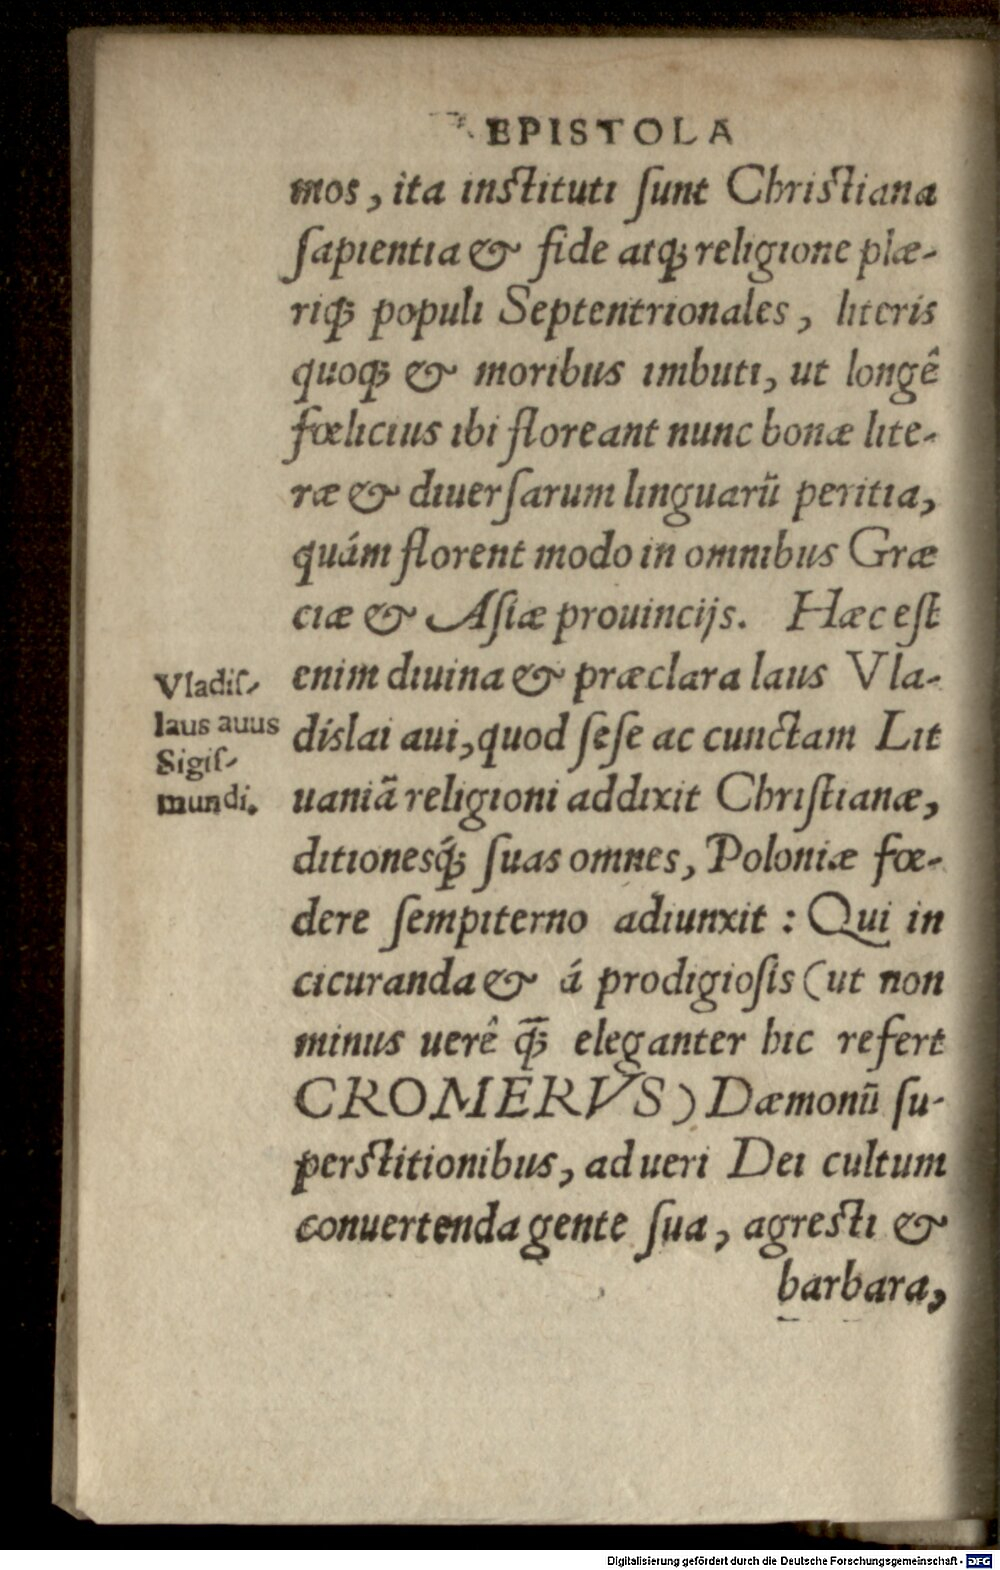 EPISTOLA
mos, ita instituti sunt Christiana
sapientia & fide atq; religione plæ-
riq; populi Septentrionales, literis
quoq; & moribus imbuti, ut longê
fœlicius ibi floreant nunc bonæ lite-
ræ & diuersarum linguarū peritia,
quám florent modo in omnibus Græ
ciæ & Asiæ prouincijs. Hæc est
enim diuina & præclara laus Vla-
dislai aui, quod sese ac cunctam Lit
uaniā religioni addixit Christianæ,
ditionesq́; suas omnes, Poloniæ fœ-
dere sempiterno adiunxit : Qui in
cicuranda & á prodigiosis (ut non
minus uerê q̄; eleganter hic refert
CROMERVS) Dæmonū su-
perstitionibus, ad ueri Dei cultum
conuertenda gente sua, agresti &
barbara,
Vladis-
laus auus
Sigis-
mundi.
Digitalisierung gefördert durch die Deutsche Forschungsgemeinschaft - DFG